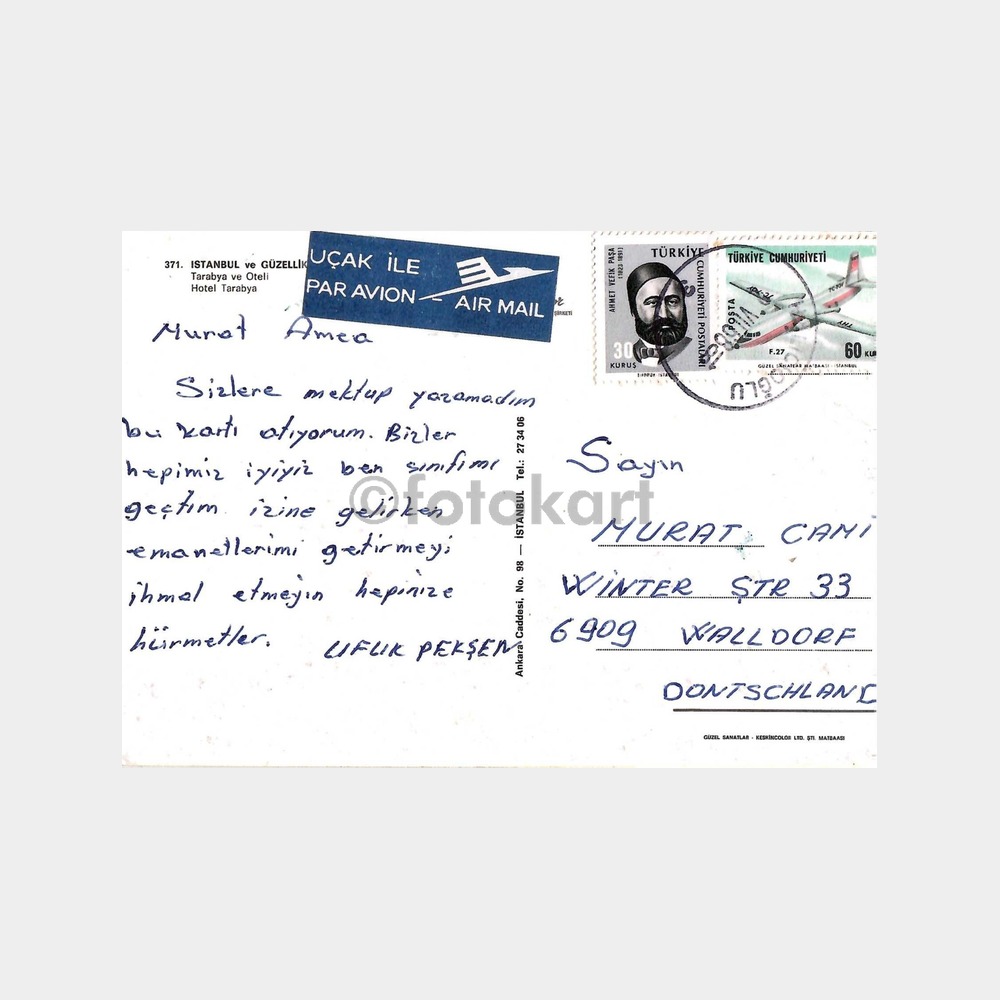 371. ISTANBUL ve GÜZELLİK
Tarabya ve Oteli
Hotel Tarabya
UÇAK İLE
PAR AVION
AIR MAIL
Murat Amca
Sizlere mektup yazamadım
bu kartı atıyorum. Bizler
hepimiz iyiyiz ben sınıfımı
geçtim izine gelirken
emanetlerimi getirmeyi
ihmal etmeyin hepinize
hürmetler.
UFUK PEKŞEN
Ankara Caddesi, No. 98 — İSTANBUL Tel.: 27 34 06
AHMET VEFİK PAŞA
(1823-1891)
TÜRKİYE
CUMHURİYETİ POSTALARI
30
KURUŞ
TÜRKİYE CUMHURİYETİ
POSTA
F.27
60 KU
GÜZEL SANATLAR MATBAASI - İSTANBUL
©fotokart
Sayın
MURAT CAMİ
WINTER ŞTR 33
6909 WALLDORF
DONTSCHLAND
GÜZEL SANATLAR - KESKİNCOLOR LTD. ŞTİ. MATBAASI